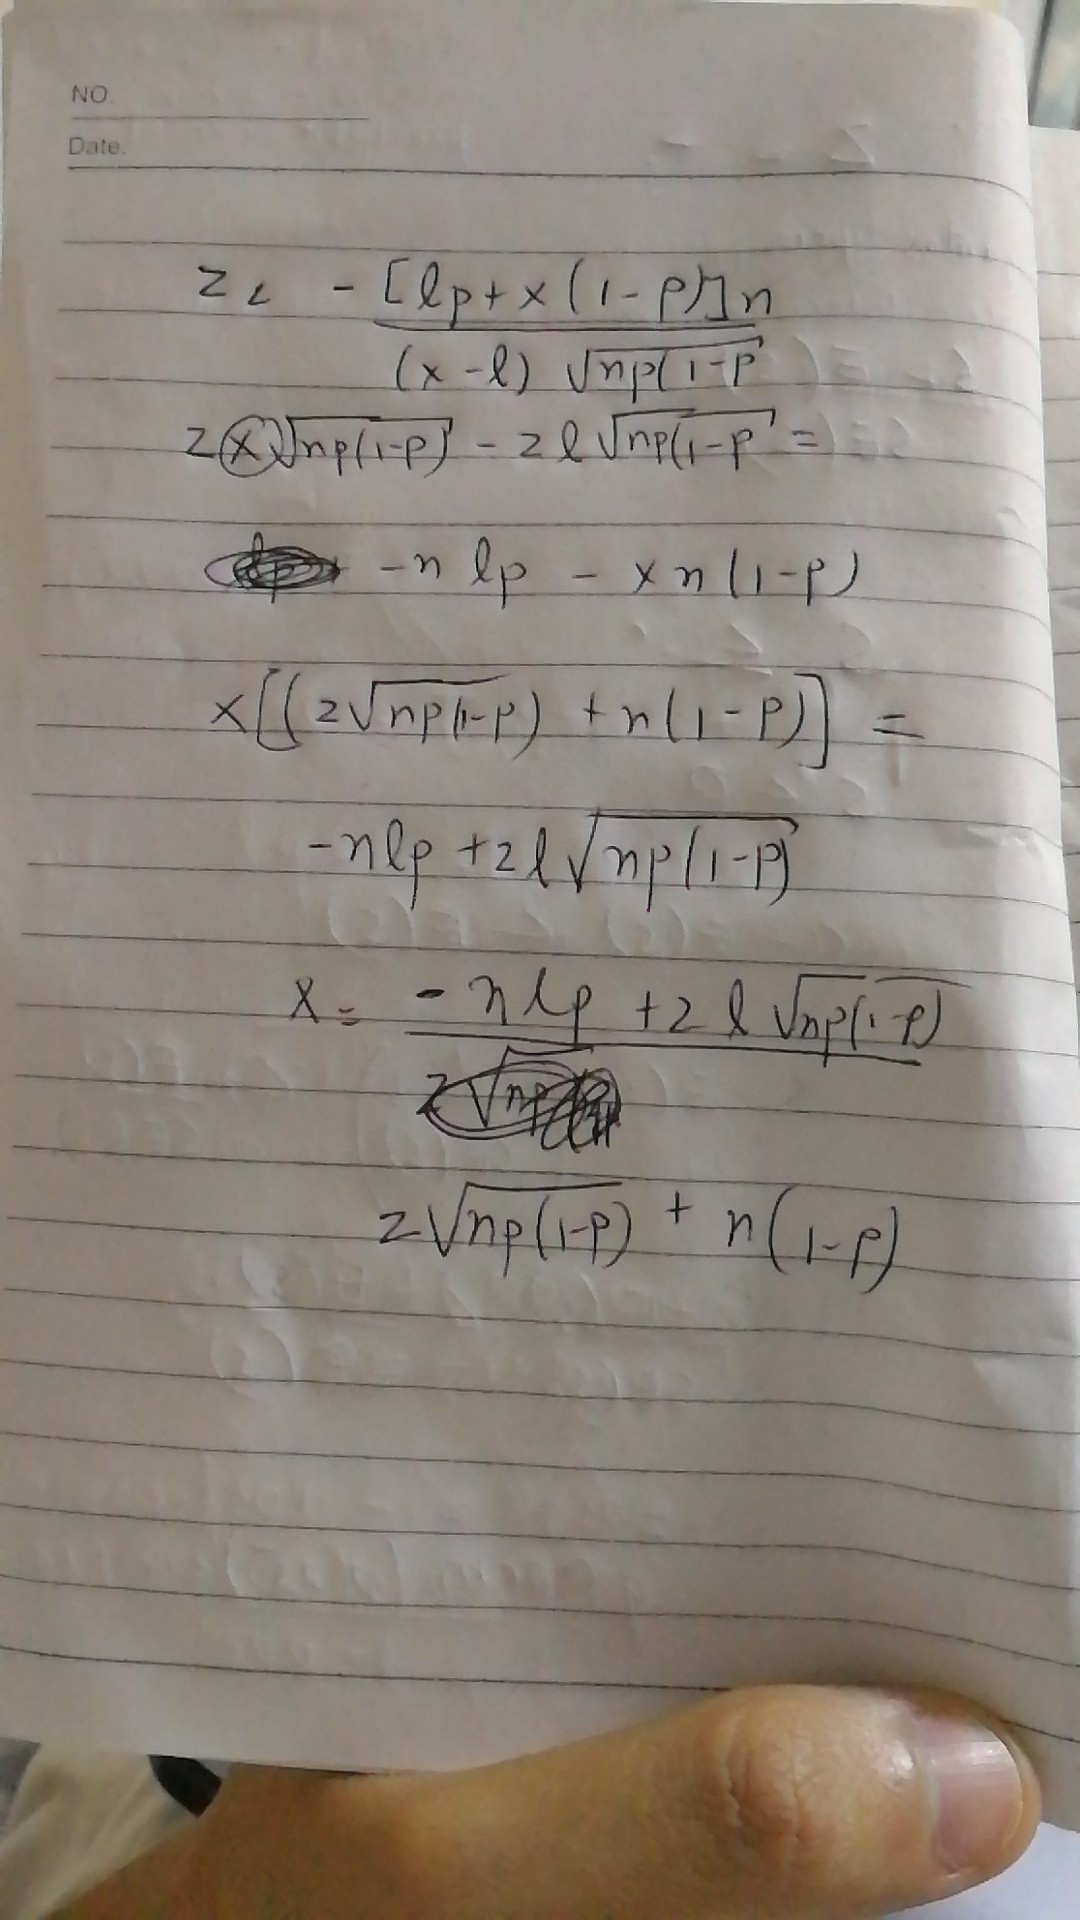 NO.
Date.
z = - [lp + x(1-p)]n
(x-l) √np(1-p
zx√np(1-p) - zl√np(1-p =
-nlp - xn(1-p)
x[(z√np(1-p) + n(1-p)] =
-nlp + zl√np(1-p)
x = -nlp + zl√np(1-p)
z√np(1-p) + n(1-p)